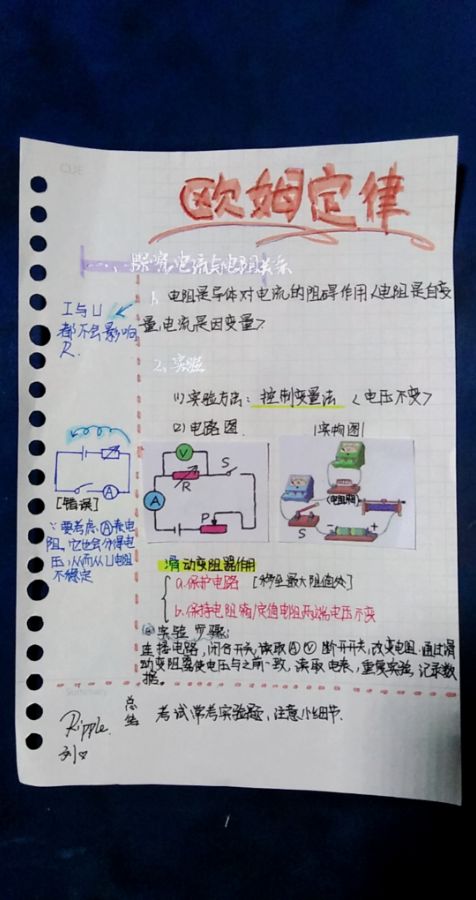 CUE
欧姆定律
一、探究电流与电阻关系
1. 电阻是导体对电流的阻碍作用〈电阻是自变
量,电流是因变量〉
I与U
都不会影响
R.
2. 实验
(1) 实验方法：控制变量法〈电压不变〉
(2) 电路图
|实物图|
V
R
S
A
P
[错误]
A
∵要考虑Ⓐ表电
阻,它也会分得电
压,从而从U电阻
不稳定
(电阻箱)
S
- +
滑动变阻器作用
a.保护电路 [移至最大阻值处]
b.保持电阻箱/定值电阻两端电压不变
③实验步骤:
连接电路,闭合开关,读取ⒶⓋ断开开关,改变电阻.通过滑
动变阻器使电压与之前一致,读取电表,重复实验,记录数
据。
Summary
总结
考试常考实验题,注意小细节.
Ripple.
列♡